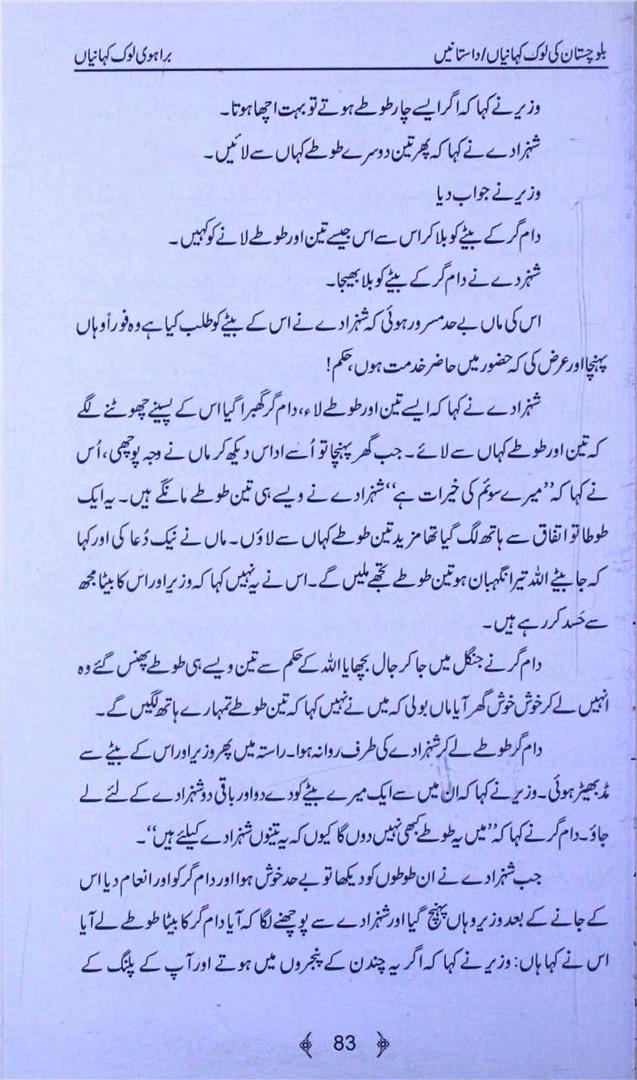 بلوچستان کی لوک کہانیاں/داستانیں
براہوی لوک کہانیاں
وزیر نے کہا کہ اگر ایسے چار طوطے ہوتے تو بہت اچھا ہوتا۔
شہزادے نے کہا کہ پھر تین دوسرے طوطے کہاں سے لائیں۔
وزیر نے جواب دیا
دام گر کے بیٹے کو بلا کر اس سے اس جیسے تین اور طوطے لانے کو کہیں۔
شہزدے نے دام گر کے بیٹے کو بلا بھیجا۔
اس کی ماں بے حد مسرور ہوئی کہ شہزادے نے اس کے بیٹے کو طلب کیا ہے وہ فوراً وہاں
پہنچا اور عرض کی کہ حضور میں حاضر خدمت ہوں، حکم!
شہزادے نے کہا کہ ایسے تین اور طوطے لاء، دام گر گھبرا گیا اس کے پسینے چھوٹنے لگے
کہ تین اور طوطے کہاں سے لائے۔ جب گھر پہنچا تو اُسے اداس دیکھ کر ماں نے وجہ پوچھی، اُس
نے کہا کہ ”میرے سوئم کی خیرات ہے“ شہزادے نے ویسے ہی تین طوطے مانگے ہیں۔ یہ ایک
طوطا تو اتفاق سے ہاتھ لگ گیا تھا مزید تین طوطے کہاں سے لاؤں۔ ماں نے نیک دُعا کی اور کہا
کہ جا بیٹے اللہ تیرا نگہبان ہو تین طوطے تجھے ملیں گے۔ اس نے یہ نہیں کہا کہ وزیر اور اس کا بیٹا مجھ
سے حَسد کر رہے ہیں۔
دام گر نے جنگل میں جا کر جال بچھایا اللہ کے حکم سے تین ویسے ہی طوطے پھنس گئے وہ
انہیں لے کر خوش خوش گھر آیا ماں بولی کہ میں نے نہیں کہا کہ تین طوطے تمہارے ہاتھ لگیں گے۔
دام گر طوطے لے کر شہزادے کی طرف روانہ ہوا۔ راستہ میں پھر وزیر اور اس کے بیٹے سے
مڈبھیڑ ہوئی۔ وزیر نے کہا کہ ان میں سے ایک میرے بیٹے کو دے دو اور باقی دو شہزادے کے لئے لے
جاؤ۔ دام گر نے کہا کہ ”میں یہ طوطے کبھی نہیں دوں گا کیوں کہ یہ تینوں شہزادے کیلئے ہیں“۔
جب شہزادے نے ان طوطوں کو دیکھا تو بے حد خوش ہوا اور دام گر کو اور انعام دیا اس
کے جانے کے بعد وزیر وہاں پہنچ گیا اور شہزادے سے پوچھنے لگا کہ آیا دام گر کا بیٹا طوطے لے آیا
اس نے کہا ہاں: وزیر نے کہا کہ اگر یہ چندن کے پنجروں میں ہوتے اور آپ کے پلنگ کے
83